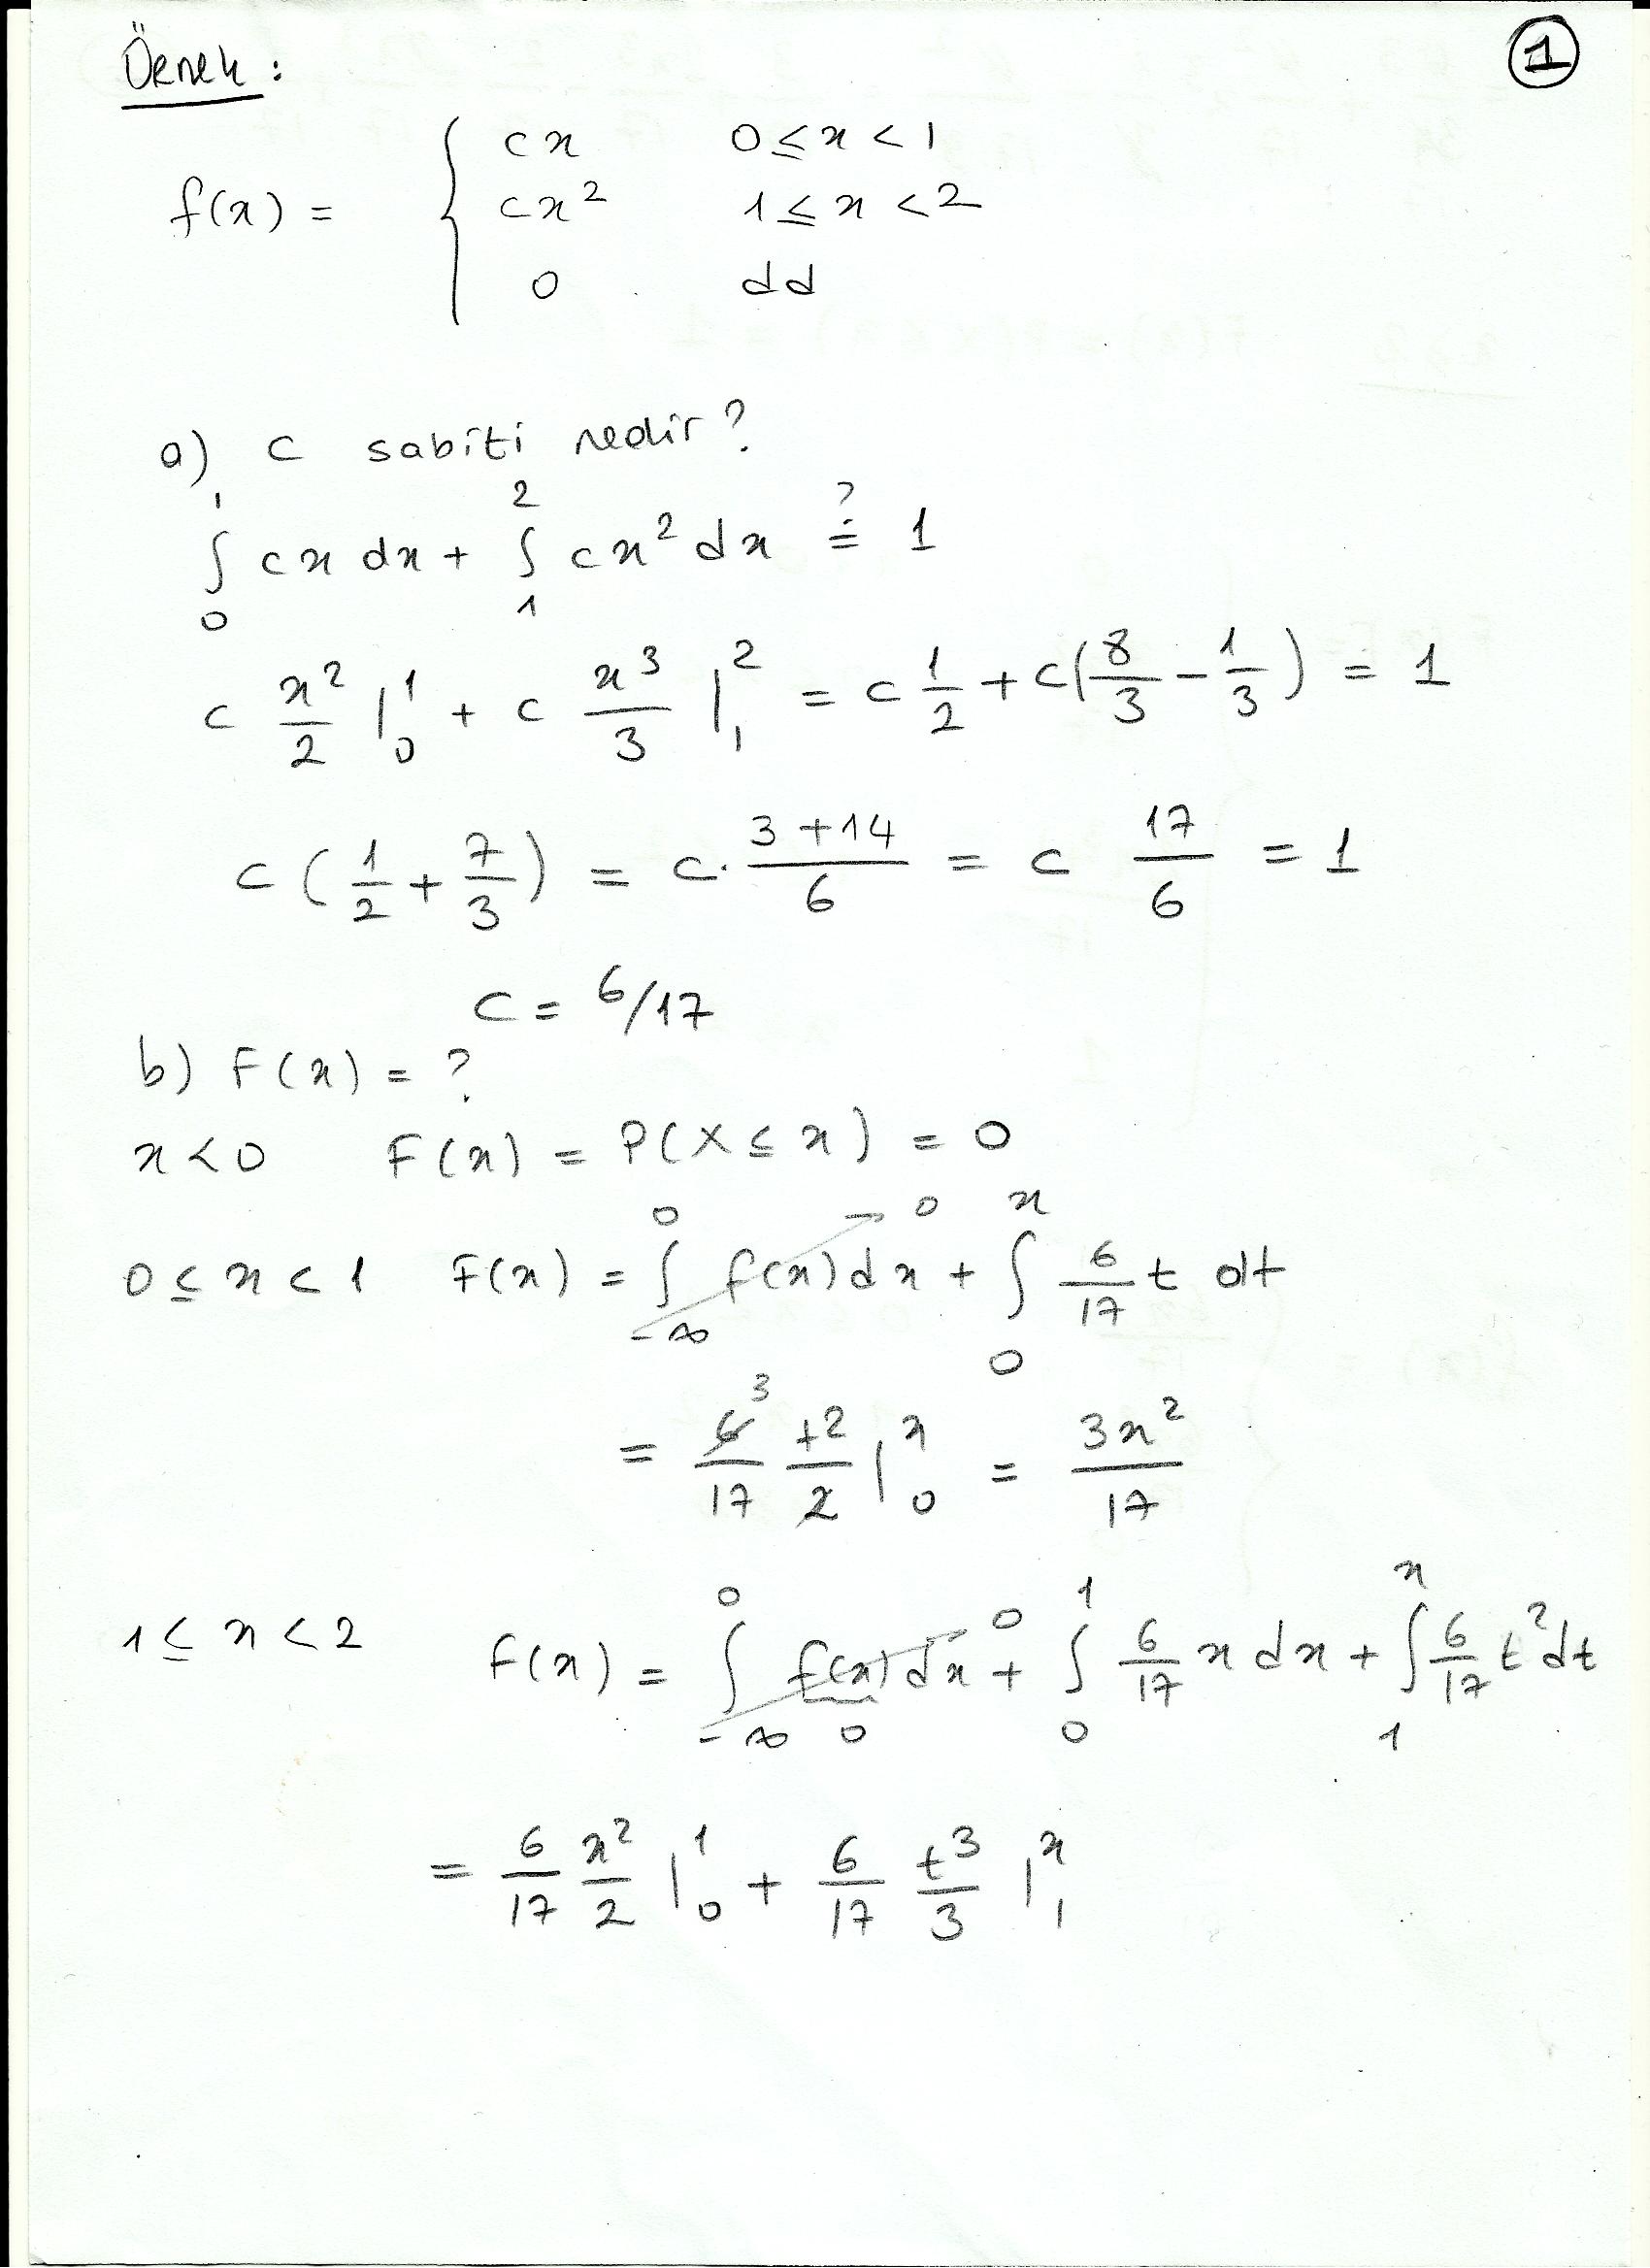 Örnek : 1
f(x) = { cx 0 ≤ x < 1
cx² 1 ≤ x < 2
0 dd
a) c sabiti nedir?
∫₀¹ cx dx + ∫₁² cx² dx ≟ 1
c x²/2 |₀¹ + c x³/3 |₁² = c 1/2 + c(8/3 − 1/3) = 1
c (1/2 + 7/3) = c · (3+14)/6 = c 17/6 = 1
c = 6/17
b) F(x) = ?
x < 0 F(x) = P(X ≤ x) = 0
0 ≤ x < 1 F(x) = ∫₋∞⁰ f(x) dx → 0 + ∫₀ˣ 6/17 t dt
= 6/17 3 t²/2 |₀ˣ = 3x²/17
1 ≤ x < 2 F(x) = ∫₋∞⁰ f(x) dx → 0 + ∫₀¹ 6/17 x dx + ∫₁ˣ 6/17 t² dt
0
= 6/17 x²/2 |₀¹ + 6/17 t³/3 |₁ˣ